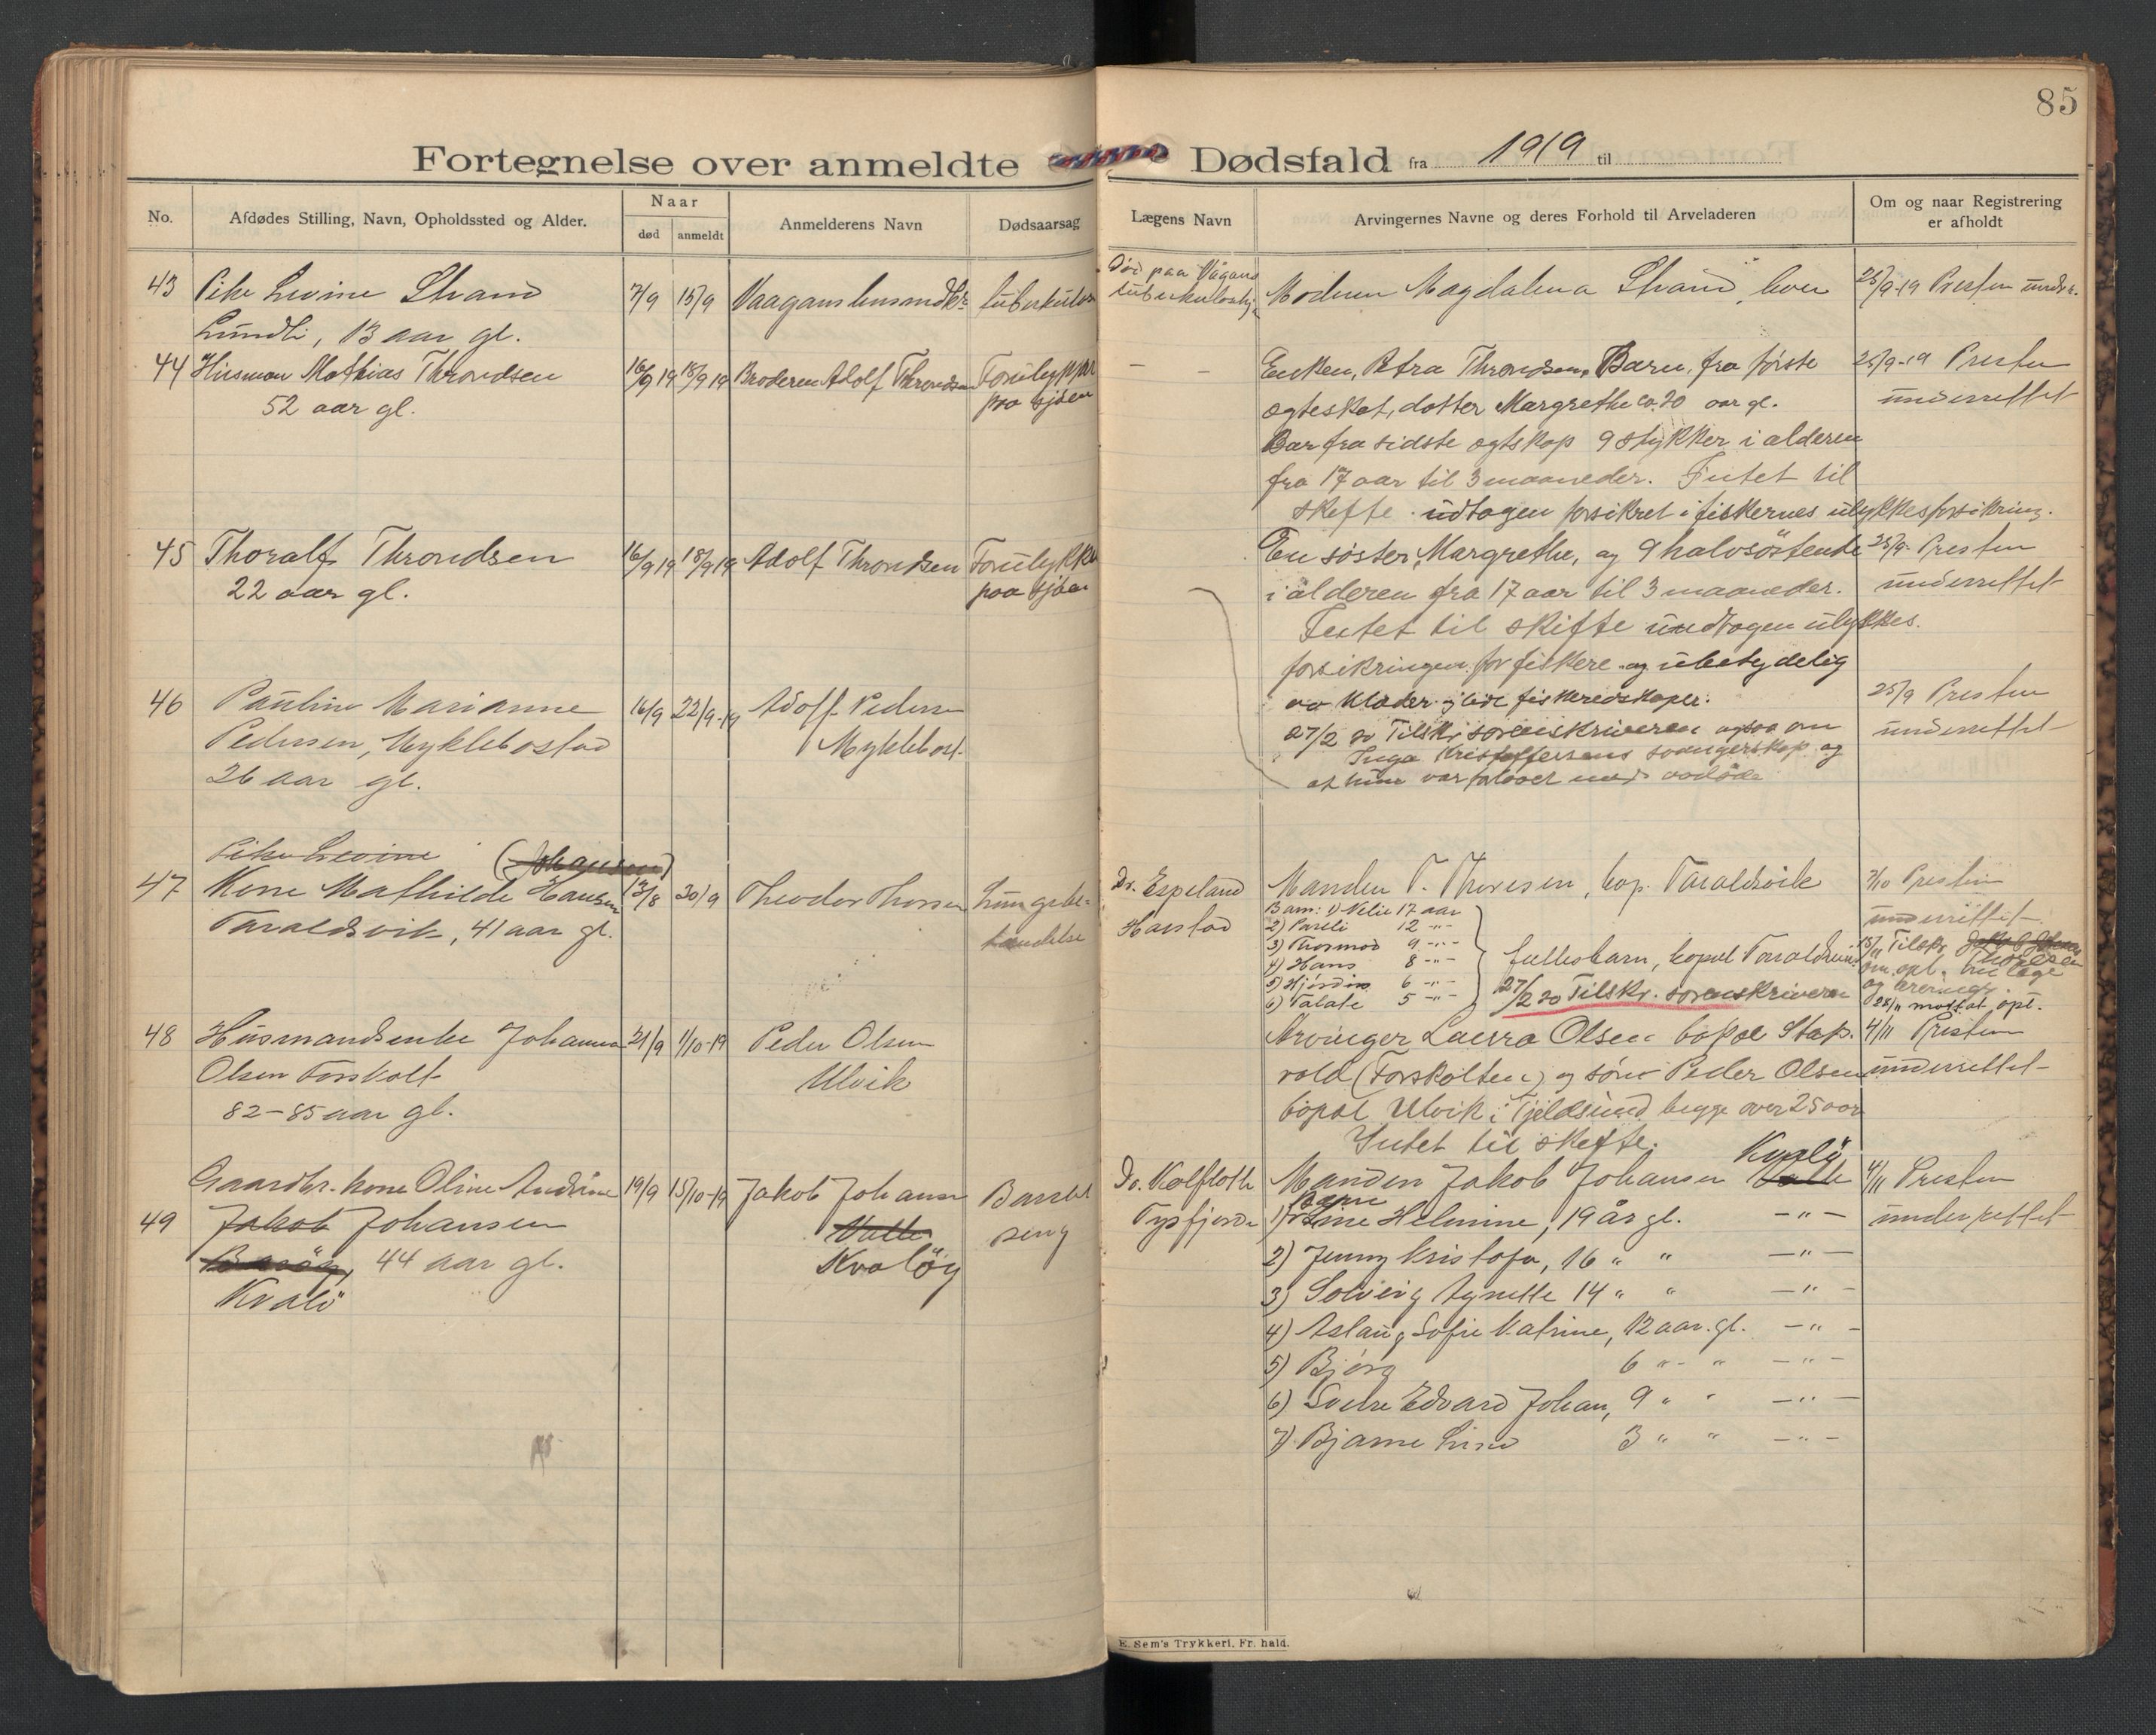 85
Fortegnelse over anmeldte Dødsfald fra 1919 til
No.
Afdødes Stilling, Navn, Opholdssted og Alder.
Naar
død
anmeldt
Anmelderens Navn
Dødsaarsag
Lægens Navn
Arvingernes Navne og deres Forhold til Arveladeren
Om og naar Registrering
er afholdt
43 Pike Levine Strand 7/9 15/9
Lundli, 13 aar gl.
Død paa Vågans
Modren Magdalena Strand, her
25/9-19 Presten underr.
44 Husman Mathias Throndsen 16/9 19 18/9 19 Broderen Adolf Throndsen Forulykket
52 aar gl. paa sjøen
Enken, Petra Throndsen, Barn, fra første
ogteskat, datter Margrethe ca. 20 aar gl.
Bar fra sidste ogtskap 9 stykker i alderen
fra 17 aar til 3 maaneder. Intet til
skefte. udtagen forsikret i fiskernes ulykkesforsikring.
25/9-19 Presten
underrettet
45 Thoralf Throndsen 16/9 19 18/9 19 Adolf Throndsen Forulykket
22 aar gl. paa sjøen
En søster, Margrethe, og 9 halvsøstende
i alderen fra 17 aar til 3 maaneder.
Intet til skifte undtagen ulykkes.
forsikringen for fiskere og ubetydelig
av klæder og fiskeredskaper.
27/2 20 Tilskr. sorenskriveren ogsaa om
Inga Kristoffersens svangerskap og
at hun var forlovet med avdøde
25/9 Presten
underrettet
46 Pauline Marianne 16/9 22/9-19 Adolf Pedersen
Pedersen, Myklebostad Myklebost.
26 aar gl.
25/9 Presten
underrettet
Pike Levine (Johansen)
47 Kone Mathilde Hansen 13/8 20/9 Theodor Thoresen Lungebe-
Taraldsvik, 41 aar gl. tændelse
Dr. Espeland
Harstad
Manden T. Thoresen, bop. Taraldsvik
Barn: 1) Nelie 17 aar
2) Pareli 12 -"-
3) Thormod 9 -"-
4) Hans 8 -"-
5) Hjørdis 6 -"-
6) Valate 5 -"-
fellesbarn, bopæl Taraldsvik
27/2 20 Tilskr. sorenskriveren
7/10 Presten
underrettet
og
28/11 mottat opl.
48 Husmandsenke Johanna 21/9 1/10-19 Peder Olsen
Olsen Forskolt Ulvik
82-85 aar gl.
Arvinger Laura Olsen bopæl Stap.
vold (Forskolten) og søn Peder Olsen
bopæl Ulvik i Tjeldsund begge over 25 aar
Intet til skefte.
4/11 Presten
underrettet
49 Gaardbr. kone Oline Andrine 19/9 15/10-19 Jakob Johansen Barsel
Jakob Johansen Valle seng
44 aar gl. Kvaløy
Kvalö
Dr. Kolfloth
Tysfjorden
Kvalö
Manden Jakob Johansen Valle
Barn
1) Trine Helmine, 19 år gl. -"-
2) Jenny Kristofa, 16 " " -"-
3) Solveig Agnette 14 " " -"-
4) Aslaug Sofie Katrine, 12 aar. gl. -"-
5) Bjørg 6 " " -"-
6) Sverre Edvard Johan, 9 " " -"-
7) Bjarne Lind 3 " " -"-
4/11 Presten
underrettet
E. Sem's Trykkeri, Fr. hald.